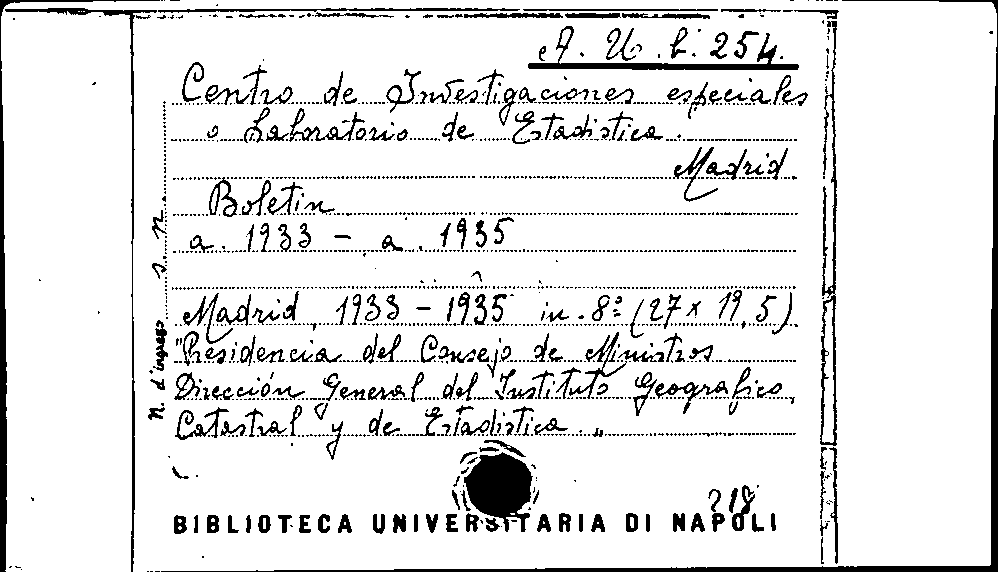 A. U. b. 254.
Centro de Investigaciones especiales
o Laboratorio de Estadistica.
Madrid.
Boletin
a. 1933 - a. 1935
Madrid, 1933 - 1935 in-8º (27 x 19,5)
"Presidencia del Consejo de Ministros
Dirección General del Instituto Geografico,
Catastral y de Estadistica."
N. d'ingresso s. n.
218
BIBLIOTECA UNIVERSITARIA DI NAPOLI